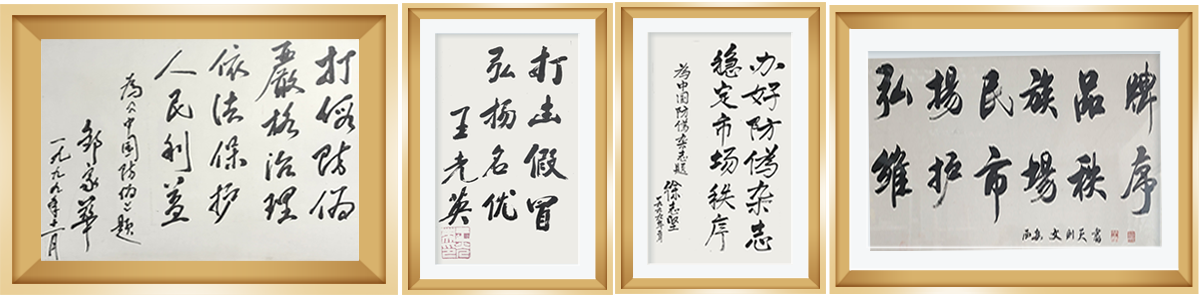 打假防偽
嚴格治理
依法保护
人民利益
為《中国防伪》题
邹家华
一九九九年十一月
打击假冒
弘扬名优
王光英
办好防偽杂志
稳定市场秩序
為中国防偽杂志题
徐志坚
弘揚民族品牌
维护市場秩序